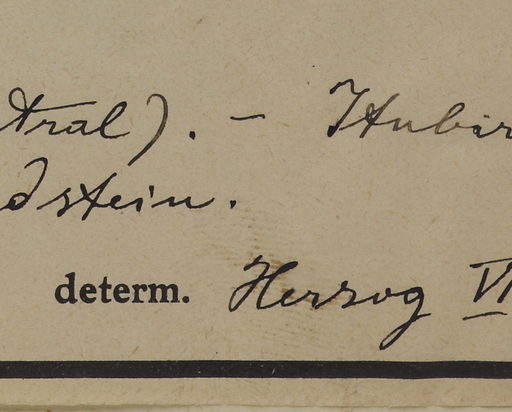 tral). – Hubir
dstein.
determ. Herzog VI